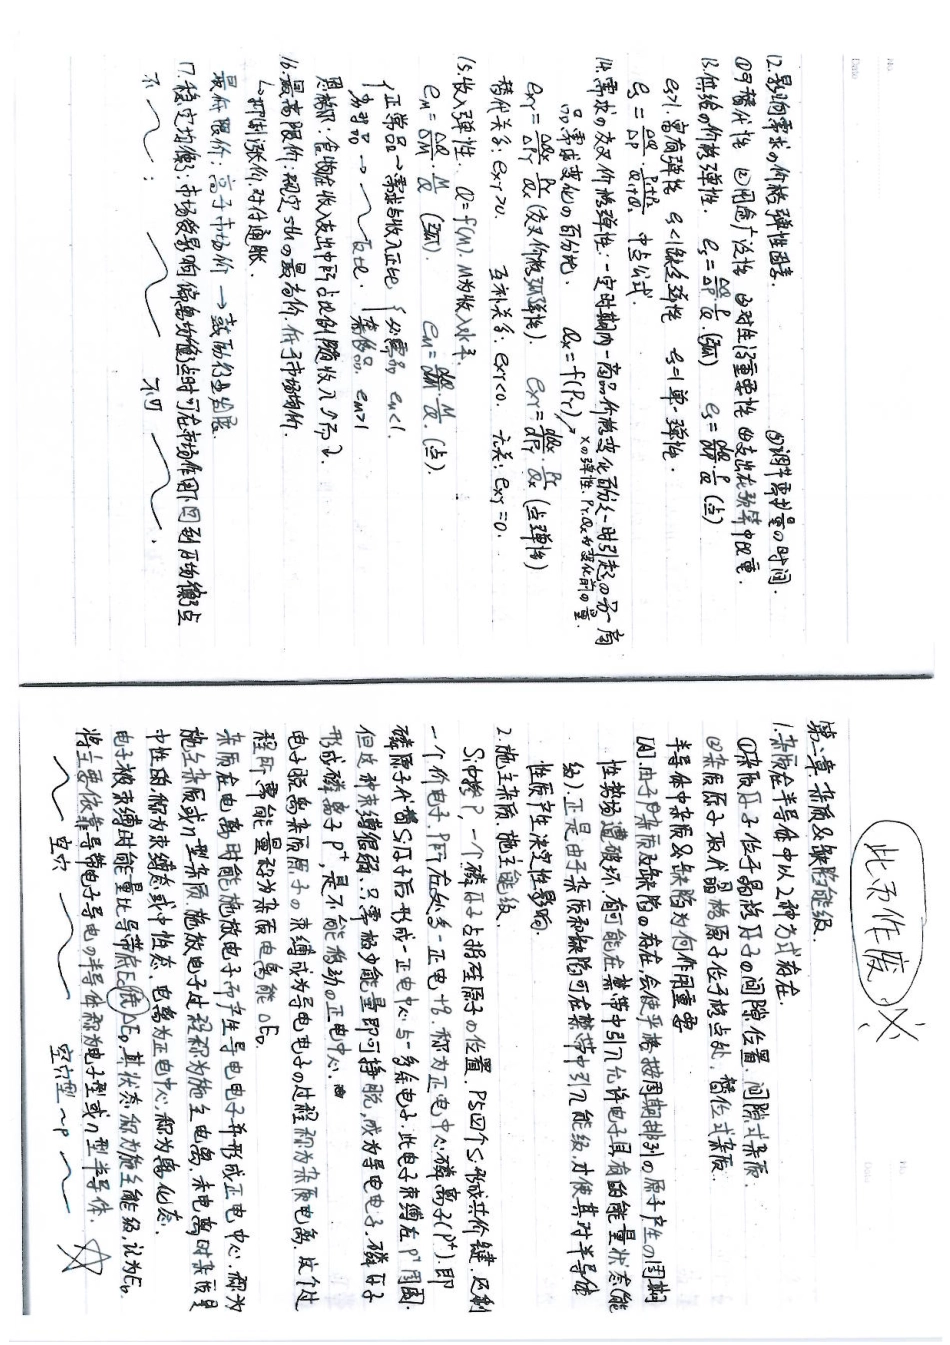 12.影响需求の价格弹性因素.
①可替代性 ②用途广泛性 ③对生活重要性 ④支出在预算中比重.
⑤调节需求量の时间.
13.供给の价格弹性. es=ΔQ/ΔP·P/Q.(弧) es=dQ/dP·P/Q(点)
es>1.富有弹性 es<1缺乏弹性 es=1单一弹性.
es=ΔQ/ΔP·(P1+P2)/(Q1+Q2) 中点公式.
14.需求の交叉价格弹性:一定时期内一商品价格变化百分之一时引起の另一商
品需求变化の百分比. Qx=f(Py)
x の弹性. Py.Qx为变化前の量.
exy=ΔQx/ΔPy·Py/Qx(交叉价格弧弹性). exy=dQx/dPy·Py/Qx(点弹性)
替代关系:exy>0. 互补关系:exy<0. 无关:exy=0.
15.收入弹性. Q=f(M).M为收入水平.
em=ΔQ/ΔM·M/Q(弧). em=dQ/dM·M/Q.(点).
正常品→需求与收入正比 必需品 em<1.
劣等品→ 反比 奢侈品. em>1
恩格尔:食物在收入支出中所占比例随收入↗而↘.
16.最高限价:规定sthの最高价.低于市场均价.
↳抑制涨价.对付通胀.
最低限价:高于市场价→鼓励行业发展.
17.稳定均衡:市场受影响偏离均衡点时可在市场作用下回到均衡点
不 : 不可 .
此页作废
第二章.杂质&缺陷能级.
1.杂质在半导体中以2种方式存在.
①杂质原子位于晶格原子の间隙位置.间隙式杂质.
②杂质原子取代晶格原子位于格点处.替位式杂质.
半导体中杂质&缺陷为何作用重要
[A].由于杂质及缺陷の存在,会使严格按周期排列の原子产生の周期
性势场遭破坏,有可能在禁带中引入允许电子具有的能量状态(能
级).正是由于杂质和缺陷可在禁带中引入能级,才使其对半导体
性质产生决定性影响.
2.施主杂质.施主能级.
Si中掺P,一个磷原子占据硅原子の位置.P与四个Si形成共价键.还剩
一个价电子.P所在处多一正电+q.称为正电中心磷离子(P+).即
磷原子代替Si原子后形成一正电中心与一多余电子.此电子束缚在P+周围.
但这种束缚很弱.只需极少能量即可挣脱,成为导电电子.磷原子
形成磷离子P+,是不能移动の正电中心.
电子脱离杂质原子の束缚成为导电电子の过程称为杂质电离.这个过
程所需能量称为杂质电离能ΔED.
杂质在电离时能施放电子而产生导电电子并形成正电中心.称为
施主杂质或n型杂质.施放电子过程称为施主电离.未电离时杂质是
中性的,称为束缚态或中性态.电离为正电中心,称为离化态.
电子被束缚时能量比导带底Ec低ΔED.其状态称为施主能级,记为ED.
将主要依靠导带电子导电の半导体称为电子型或n型半导体.
空穴 空穴型 P